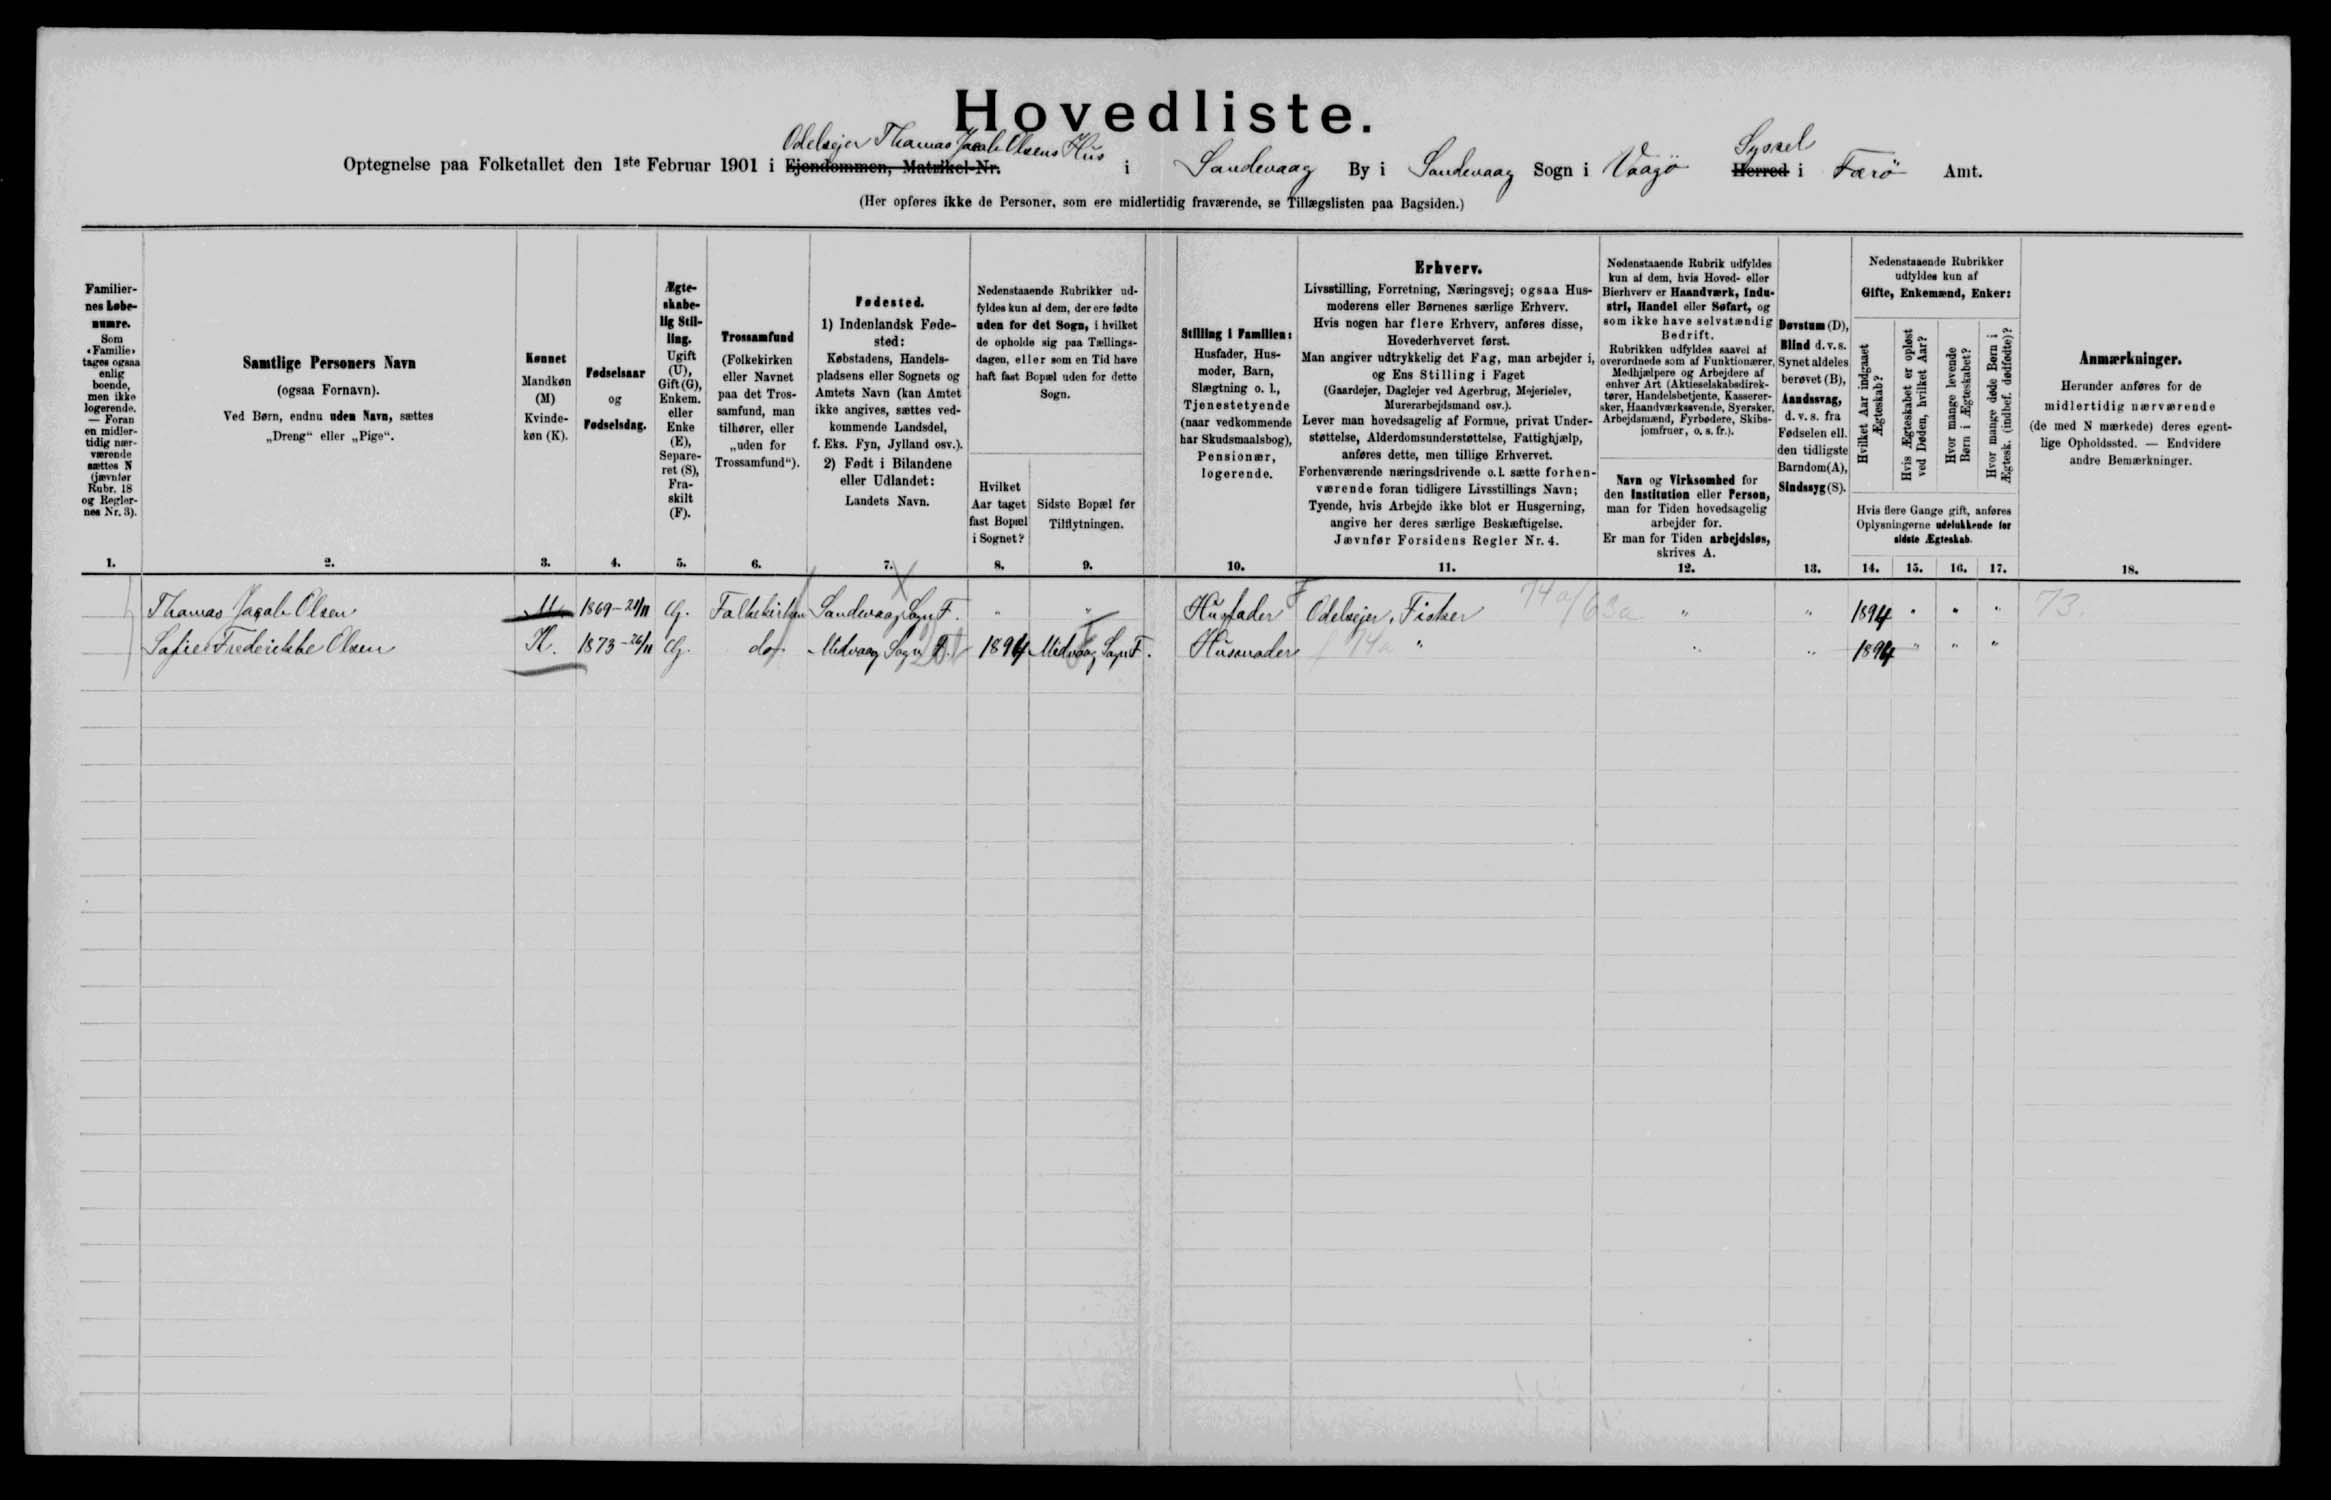 Hovedliste.
Odelsejer Thomas Jacob Olsens Hus
Syssel
Optegnelse paa Folketallet den 1ste Februar 1901 i Ejendommen, Matrikel-Nr. i Sandevaag By i Sandevaag Sogn i Vaagö Herred i Færö Amt.
(Her opføres ikke de Personer, som ere midlertidig fraværende, se Tillægslisten paa Bagsiden.)
Familier-
nes Løbe-
numre.
Som
«Familie»
tages ogsaa
enlig
boende,
men ikke
logerende.
— Foran
en midler-
tidig nær-
værende
sættes N
(jævnfør
Rubr. 18
og Regler-
nes Nr. 3).
Samtlige Personers Navn
(ogsaa Fornavn).
Ved Børn, endnu uden Navn, sættes
„Dreng“ eller „Pige“.
Kønnet
Mandkøn
(M)
Kvinde-
køn (K).
Fødselsaar
og
Fødselsdag.
Ægte-
skabe-
lig Stil-
ling.
Ugift
(U),
Gift (G),
Enkem.
eller
Enke
(E),
Separe-
ret (S),
Fra-
skilt
(F).
Trossamfund
(Folkekirken
eller Navnet
paa det Tros-
samfund, man
tilhører, eller
„uden for
Trossamfund“).
Fødested.
1) Indenlandsk Føde-
sted:
Købstadens, Handels-
pladsens eller Sognets og
Amtets Navn (kan Amtet
ikke angives, sættes ved-
kommende Landsdel,
f. Eks. Fyn, Jylland osv.).
2) Født i Bilandene
eller Udlandet:
Landets Navn.
Nedenstaaende Rubrikker ud-
fyldes kun af dem, der ere fødte
uden for det Sogn, i hvilket
de opholde sig paa Tællings-
dagen, eller som en Tid have
haft fast Bopæl uden for dette
Sogn.
Hvilket
Aar taget
fast Bopæl
i Sognet?
Sidste Bopæl før
Tilflytningen.
Stilling i Familien:
Husfader, Hus-
moder, Barn,
Slægtning o. l.,
Tjenestetyende
(naar vedkommende
har Skudsmaalsbog),
Pensionær,
logerende.
Erhverv.
Livsstilling, Forretning, Næringsvej; ogsaa Hus-
moderens eller Børnenes særlige Erhverv.
Hvis nogen har flere Erhverv, anføres disse,
Hovederhvervet først.
Man angiver udtrykkelig det Fag, man arbejder i,
og Ens Stilling i Faget
(Gaardejer, Daglejer ved Agerbrug, Mejerielev,
Murerarbejdsmand osv.).
Lever man hovedsagelig af Formue, privat Under-
støttelse, Alderdomsunderstøttelse, Fattighjælp,
anføres dette, men tillige Erhvervet.
Forhenværende næringsdrivende o. l. sætte forhen-
værende foran tidligere Livsstillings Navn;
Tyende, hvis Arbejde ikke blot er Husgerning,
angive her deres særlige Beskæftigelse.
Jævnfør Forsidens Regler Nr. 4.
Nedenstaaende Rubrik udfyldes
kun af dem, hvis Hoved- eller
Bierhverv er Haandværk, Indu-
stri, Handel eller Søfart, og
som ikke have selvstændig
Bedrift.
Rubrikken udfyldes saavel af
overordnede som af Funktionærer,
Medhjælpere og Arbejdere af
enhver Art (Aktieselskabsdirek-
tører, Handelsbetjente, Kasserer-
sker, Haandværkssvende, Syersker,
Arbejdsmænd, Fyrbødere, Skibs-
jomfruer, o. s. fr.).
Navn og Virksomhed for
den Institution eller Person,
man for Tiden hovedsagelig
arbejder for.
Er man for Tiden arbejdsløs,
skrives A.
Døvstum (D),
Blind d. v. s.
Synet aldeles
berøvet (B),
Aandssvag,
d. v. s. fra
Fødselen ell.
den tidligste
Barndom (A),
Sindssyg (S).
Nedenstaaende Rubrikker
udfyldes kun af
Gifte, Enkemænd, Enker:
Hvilket Aar indgaaet
Ægteskab?
Hvis Ægteskabet er opløst
ved Døden, hvilket Aar?
Hvor mange levende
Børn i Ægteskabet?
Hvor mange døde Børn i
Ægtesk. (indbef. dødfødte)?
Hvis flere Gange gift, anføres
Oplysningerne udelukkende for
sidste Ægteskab.
Anmærkninger.
Herunder anføres for de
midlertidig nærværende
(de med N mærkede) deres egent-
lige Opholdssted. — Endvidere
andre Bemærkninger.
1. 2. 3. 4. 5. 6. 7. 8. 9. 10. 11. 12. 13. 14. 15. 16. 17. 18.
Thomas Jacob Olsen M 1869-21/11 G. Folkekirken Sandevaag Sogn F. " " Husfader Odelsejer, Fisker 74a/63a " " 1894 " " " 73.
Sofie Frederikke Olsen K. 1873-26/11 G. do Midvaag Sogn F. 1894 Midvaag Sogn F. Husmoder 74a " " " 1894 " " "